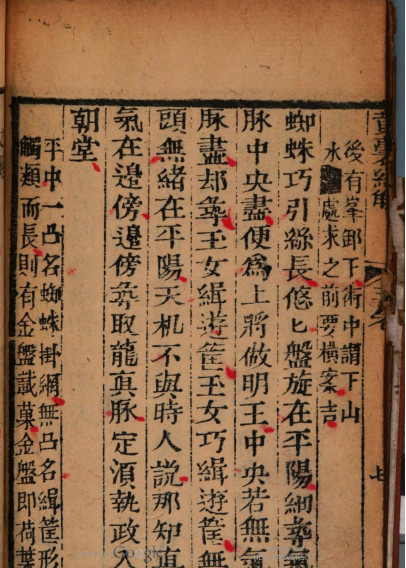 後有峯卸下術中謂下山
水處求之前要橫案吉
蜘蛛巧引絲長悠匕盤旋在平陽細尋氣
脉中央盡便爲上將做明王中央若無氣
脉盡却尋玉女緝遊筐玉女巧緝遊筐無
頭無緒在平陽天机不與時人說那知真
氣在邉傍邉傍尋取龍真脉定須執政入
朝堂
平中一凸名蜘蛛掛網無凸名緝筐形
觸類而長則有金盤載菓金盤即荷葉
七
Google